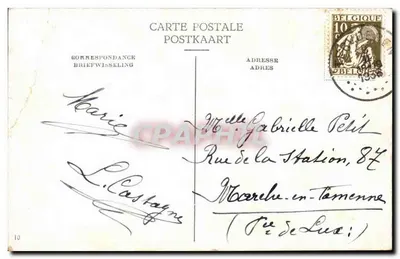 CARTE POSTALE
POSTKAART
CORRESPONDANCE
BRIEFWISSELING
ADRESSE
ADRES
BELGIQUE
10
BELGIE
Marie
L. Castagne
CPARAMA
Melle Gabrielle Petit
Rue de la Station, 87
Marche-en-Famenne
(Pce de Lux:)
10